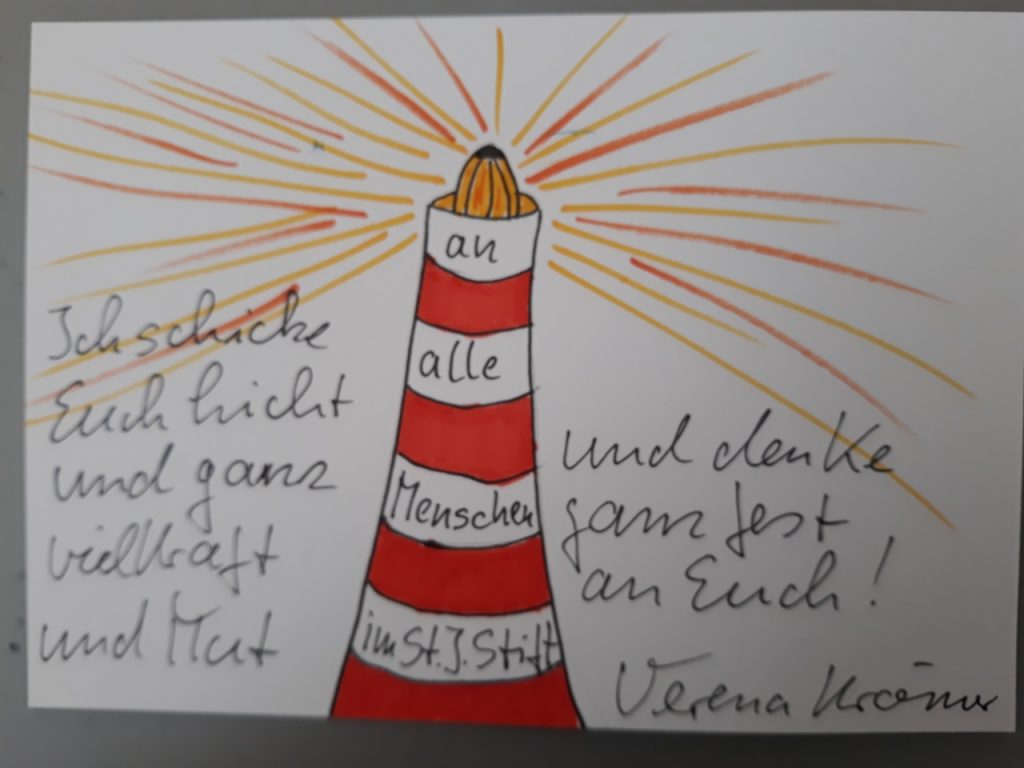 an
alle
Menschen
im St. J. Stift
Ich schicke
Euch Licht
und ganz
viel Kraft
und Mut
und denke
ganz fest
an Euch!
Verena